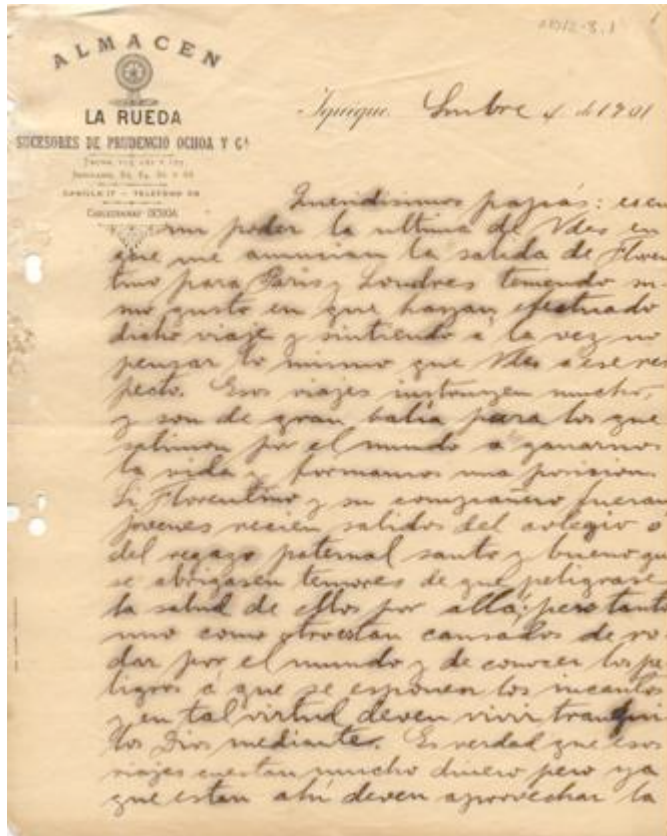 ALMACEN
LA RUEDA
SUCESORES DE PRUDENCIO OCHOA Y Cª
CASILLA 17 - TELEFONO
CABLEGRAMAS OCHOA
Iquique 4 de 1901
Queridisimos papás:
mi poder la ultima de Vdes en
que me anuncian la salida de Floren
tino para Paris y Londres teniendo su
mo gusto en que hayan efectuado
dicho viaje y sintiendo á la vez no
pensar lo mismo que Vdes a ese res
pecto. Esos viajes instruyen mucho,
y son de gran balia para los que
salimos por el mundo a ganarnos
la vida y formarnos una posicion.
Si Florentino y su compañero fueran
jovenes recien salidos del colegio o
del regazo paternal santo y bueno que
se abrigasen temores de que peligrase
la salud de ellos por allá; pero tanto
uno como otro estan cansados de ro
dar por el mundo y de conocer los pe
ligros á que se esponen los incautos
y en tal virtud deven vivir tranqui
los Dios mediante. Es verdad que esos
viajes cuestan mucho dinero pero ya
que estan ahi deven aprovechar la